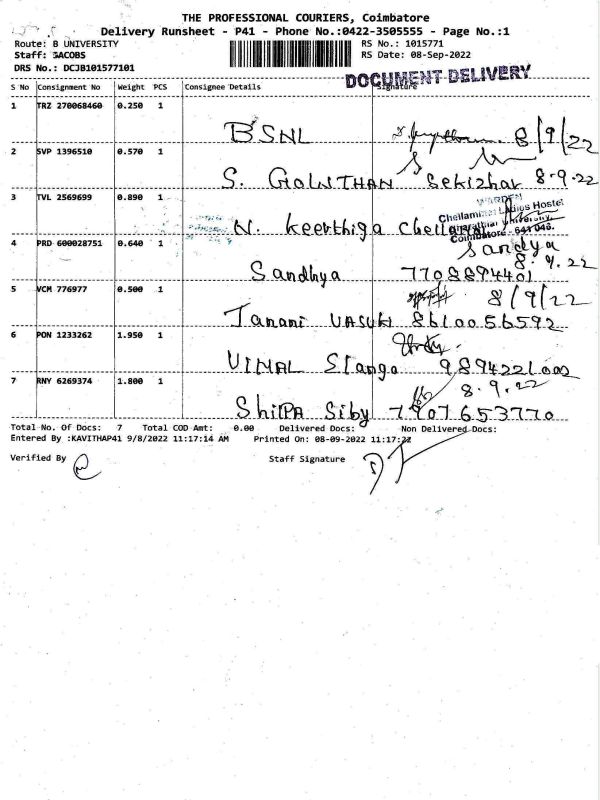 THE PROFESSIONAL COURIERS, Coimbatore
Delivery Runsheet - P41 - Phone No.:0422-3505555 - Page No.:1
Route: B UNIVERSITY
RS No.: 1015771
Staff: JACOBS
RS Date: 08-Sep-2022
DRS No.: DCJB101577101
DOCUMENT DELIVERY
S No Consignment No Weight PCS Consignee Details Signature
1 TRZ 270068460 0.250 1
BSNL 8/9/22
2 SVP 1396510 0.570 1
S. GOWTHAN Sekizhar 8-9-22
3 TVL 2569699 0.890 1
WARDEN
Chellammal Ladies Hostel
Bharathiar University,
Coimbatore - 641 046.
N. Keerthiga Chellamal
4 PRD 600028751 0.640 1
Sandya
8.9.22
Sandhya 7708894401
5 VCM 776977 0.500 1
8/9/22
Janani VASUKI 8610056592
6 PON 1233262 1.950 1
VIMAL Slango 9894221002
7 RNY 6269374 1.800 1
8.9.22
ShilPA Siby 7907653770
Total No. Of Docs: 7 Total COD Amt: 0.00 Delivered Docs: Non Delivered Docs:
Entered By :KAVITHAP41 9/8/2022 11:17:14 AM Printed On: 08-09-2022 11:17:22
Verified By Staff Signature